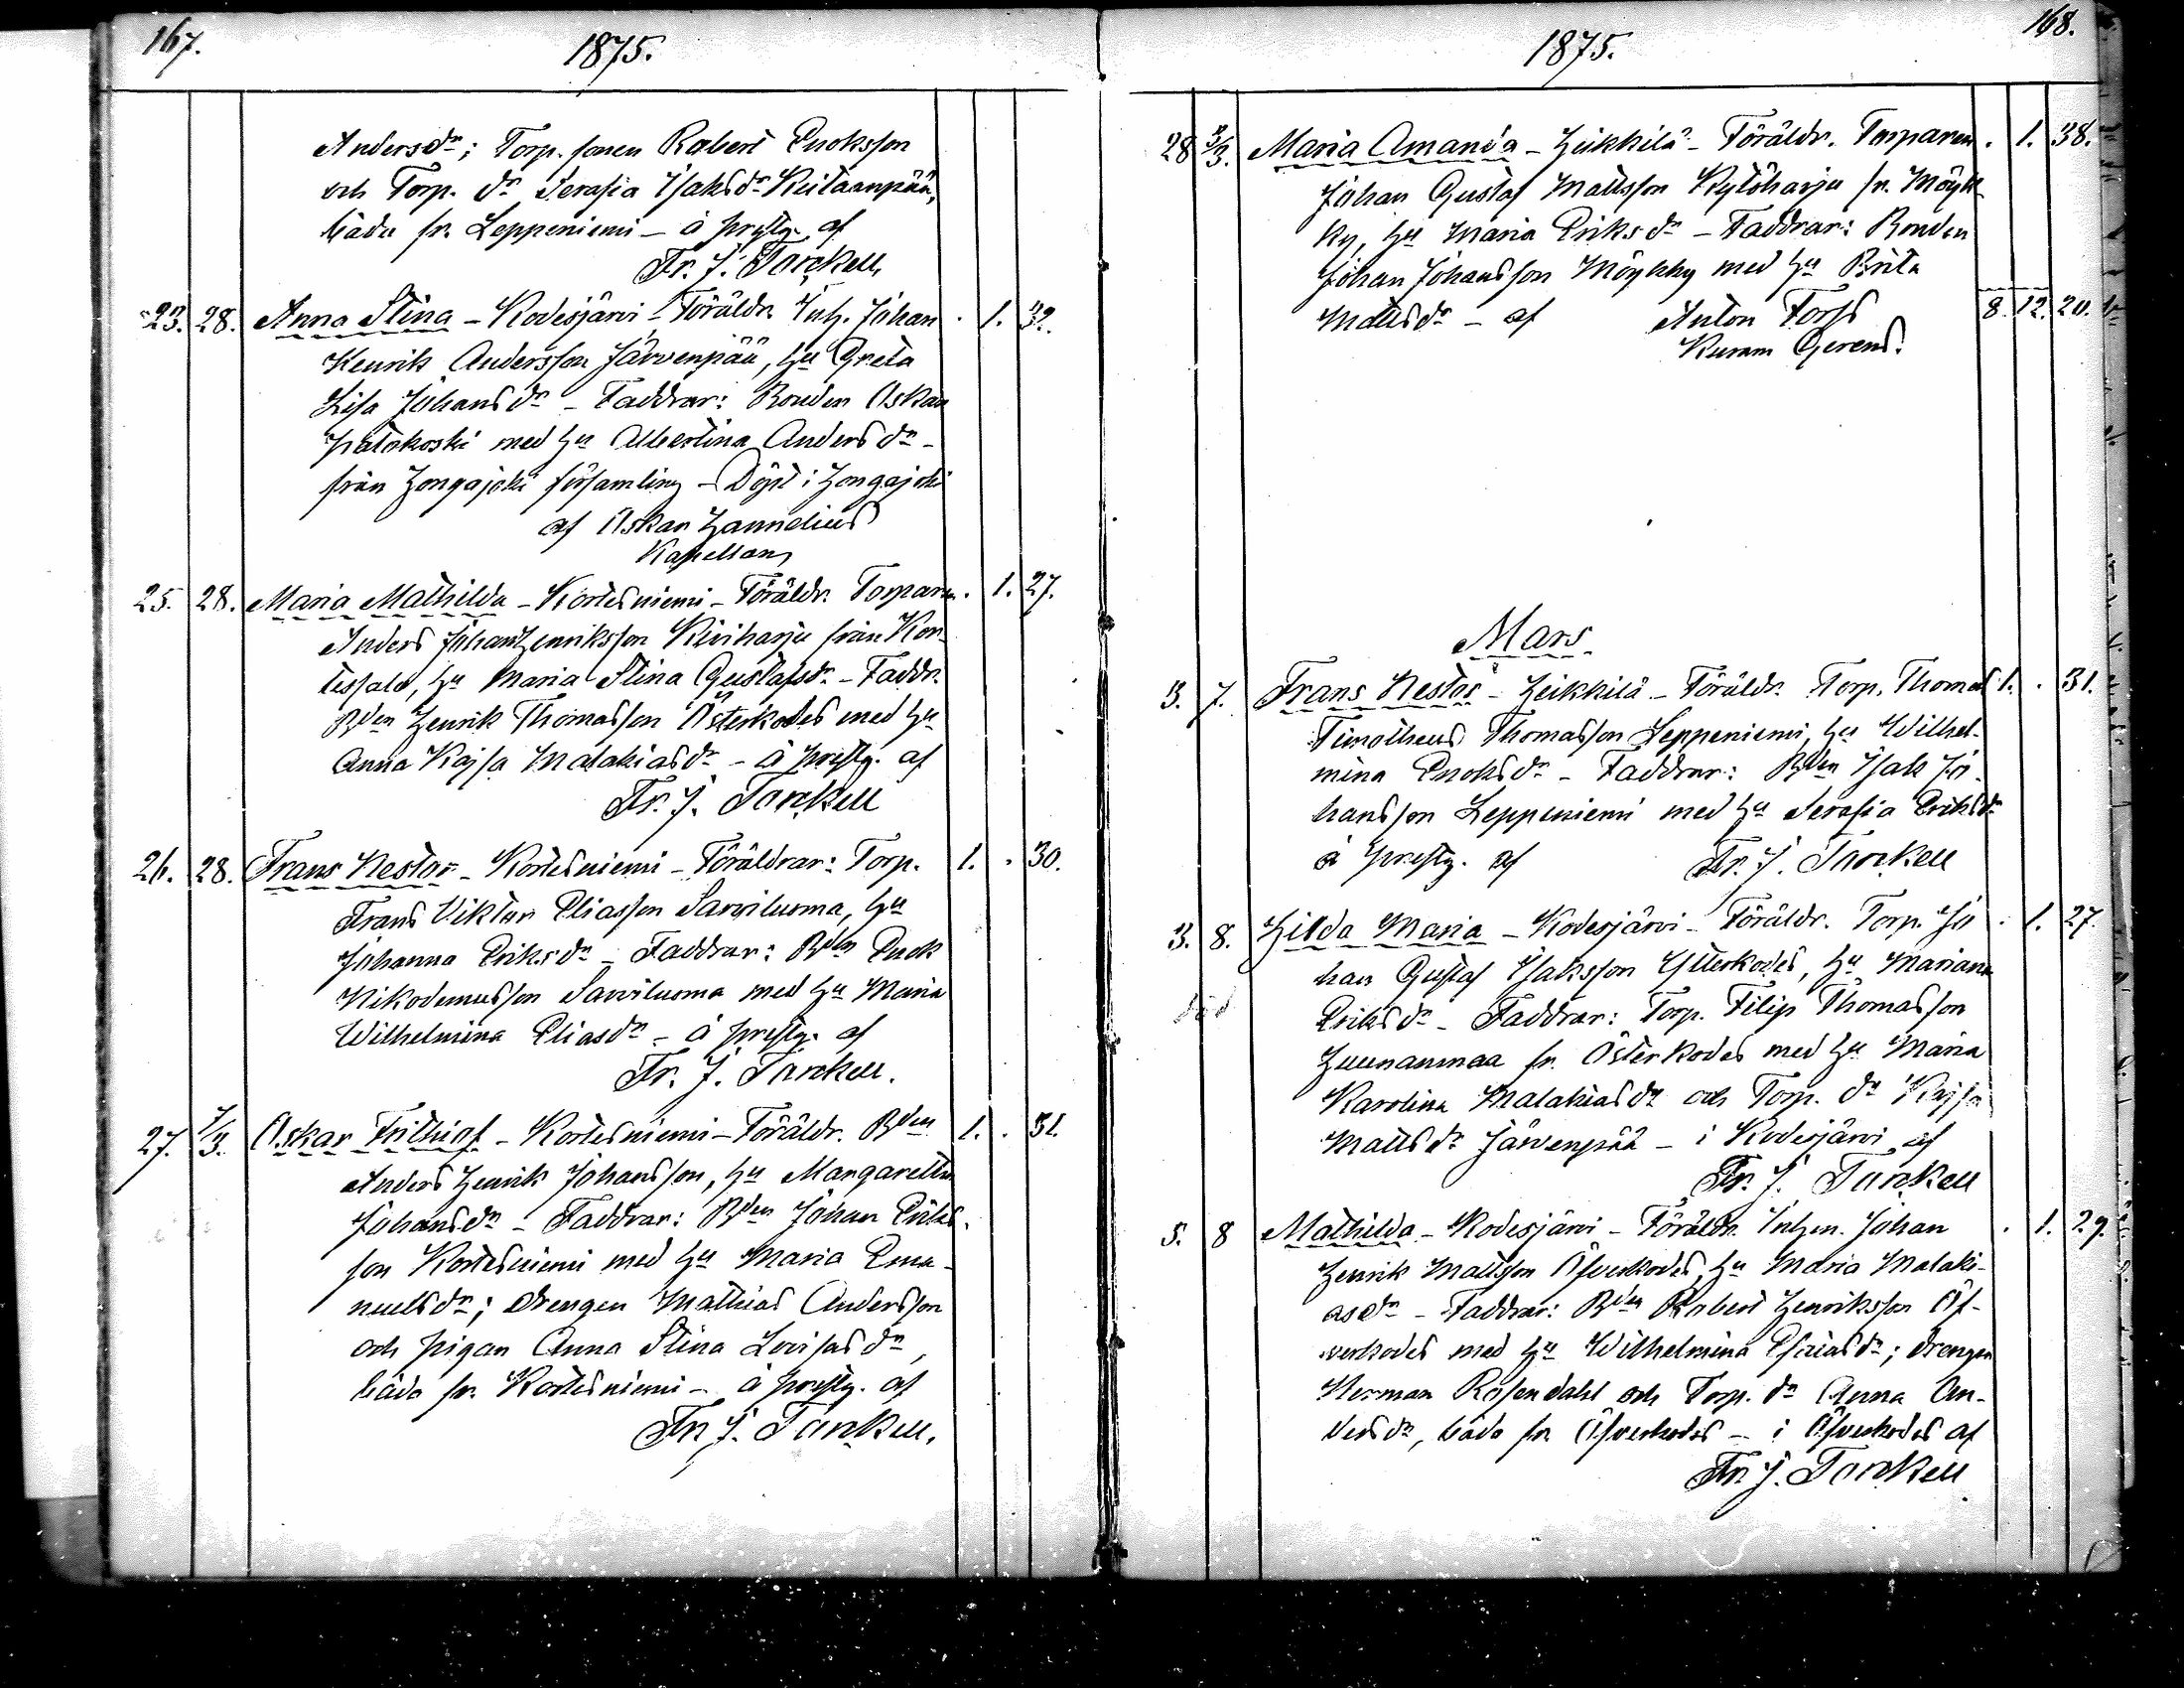 167.
1875.
Andersdr; Torp. sonen Robert Enoksson
och Torp. dr Serafia Isaksdr Keitaanpää,
båda fr. Leppeniemi – å prestg. af
Fr. J. Tarckell
23. 28. Anna Stina – Kodesjärvi – Föräldr. Inh. Johan . 1. 32.
Henrik Andersson Järvenpää, hu Greta
Lisa Johansdr – Faddrar: Bonden Oskar
Hatakoski med hu Albertina Andersdr –
från Hongajoki församling – Döpt i Hongajoki
af Oskar Hannelius
Kapellan
25. 28. Maria Mathilda – Kortesniemi – Föräldr. Torparen . 1. 27.
Anders Johan Henriksson Kiviharju från Kor-
tessalo, hu Maria Stina Gustafsdr – Faddr.
Bden Henrik Thomasson Österkodes med hu
Anna Kajsa Malakiasdr – å prestg. af
Fr. J. Tarckell
26. 28. Frans Nestor – Kortesniemi – Föräldrar: Torp. 1. . 30.
Frans Viktor Eliasson Sarviluoma, hu
Johanna Eriksdr – Faddrar: Bden Enok
Nikodemusson Sarviluoma med hu Maria
Wilhelmina Eliasdr – å prestg. af
Fr. J. Tarckell.
27. 7/3. Oskar Frithiof – Kortesniemi – Föräldr. Bden 1. . 31.
Anders Henrik Johansson, hu Margaretha
Johansdr – Faddrar: Bden Johan Eriks-
son Kortesniemi med hu Maria Ema-
nuelsdr; drengen Mathias Andersson
och pigan Anna Stina Lovisasdr,
båda fr. Kortesniemi – å prestg. af
Fr. J. Tarckell.
168.
1875.
28 /3. Maria Amanda – Heikkilä – Föräldr. Torparen . 1. 38.
Johan Gustaf Mattsson Kytöharju fr. Möyk-
ky, hu Maria Eriksdr – Faddrar: Bonden
Johan Johansson Möykky med hu Brita
Mattsdr – af Anton Forss 8. 12. 20.
Kuram Gerens.
Mars.
3. 7. Frans Nestor – Heikkilä – Föräldr. Torp. Thomas 1. . 31.
Timotheus Thomasson Leppeniemi, hu Wilhel-
mina Enoksdr – Faddrar: Bden Isak Jo-
hansson Leppeniemi med hu Serafia Eriksdr
å prestg. af Fr. J. Tarckell
3. 8. Hilda Maria – Kodesjärvi – Föräldr. Torp. Jo . 1. 27.
han Gustaf Isaksson Ytterkodes, hu Mariana
död
Eriksdr – Faddrar: Torp. Filip Thomasson
Huunanmaa fr. Österkodes med hu Maria
Karolina Malakiasdr och Torp. dr Kajsa
Mattsdr Järvenpää – i Kodesjärvi af
Fr. J. Tarckell
5. 8 Mathilda – Kodesjärvi – Föräldr. Inhen. Johan . 1. 29.
Henrik Mattsson Öfverkodes, hu Maria Malaki-
asdr – Faddrar: Bden Robert Henriksson Öf-
verkodes med hu Wilhelmina Esaiasdr; drengen
Herman Rosendahl och Torp. dr Anna An-
dersdr, båda fr. Öfverkodes – i Öfverkodes af
Fr. J. Tarckell